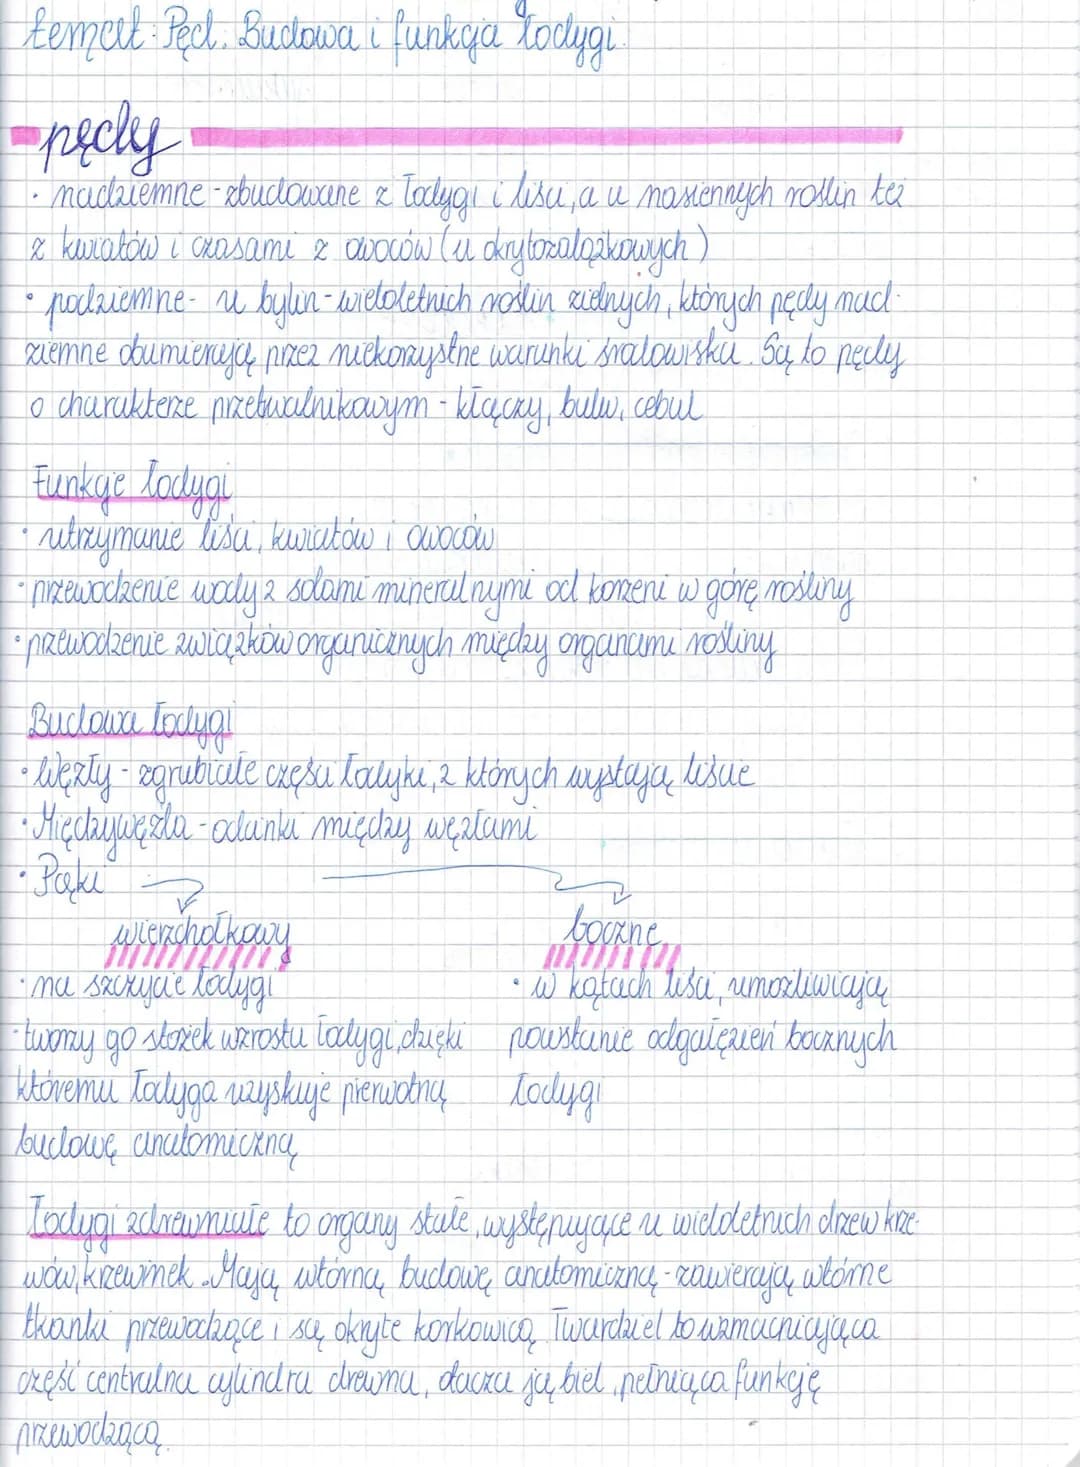 temat: Pęd. Budowa i funkcja łodygi.
pędy
• nadziemne - zbudowane z łodygi i liści, a u nasiennych roślin też
z kwiatów i czasami z owoców (u okrytozalążkowych)
• podziemne - u bylin - wieloletnich roślin zielnych, których pędy nad-
ziemne obumierają przez niekorzystne warunki środowiska. Są to pędy
o charakterze przetrwalnikowym - kłączy, bulw, cebul
Funkcje łodygi
• utrzymanie liści, kwiatów i owoców
• przewodzenie wody z solami mineralnymi od korzeni w górę rośliny
• przewodzenie związków organicznych między organami rośliny
Budowa łodygi
• Węzły - zgrubiałe części łodyki, z których wystają liście
• Międzywęźla - odcinki między węzłami
• Pąki
wierzchołkowy boczne
• na szczycie łodygi • w kątach liści, umożliwiają
• tworzy go stożek wzrostu łodygi, dzięki powstanie odgałęzień bocznych
któremu łodyga uzyskuje pierwotną łodygi
budowę anatomiczną
Łodygi zdrewniałe to organy stałe, występujące u wieloletnich drzew krze-
wów, krzewinek. Mają wtórną budowę anatomiczną - zawierają wtórne
tkanki przewodzące i są okryte korkowicą. Twardziel to wzmacniająca
część centralna cylindra drewna, otacza ją biel, pełniąca funkcję
przewodzącą.